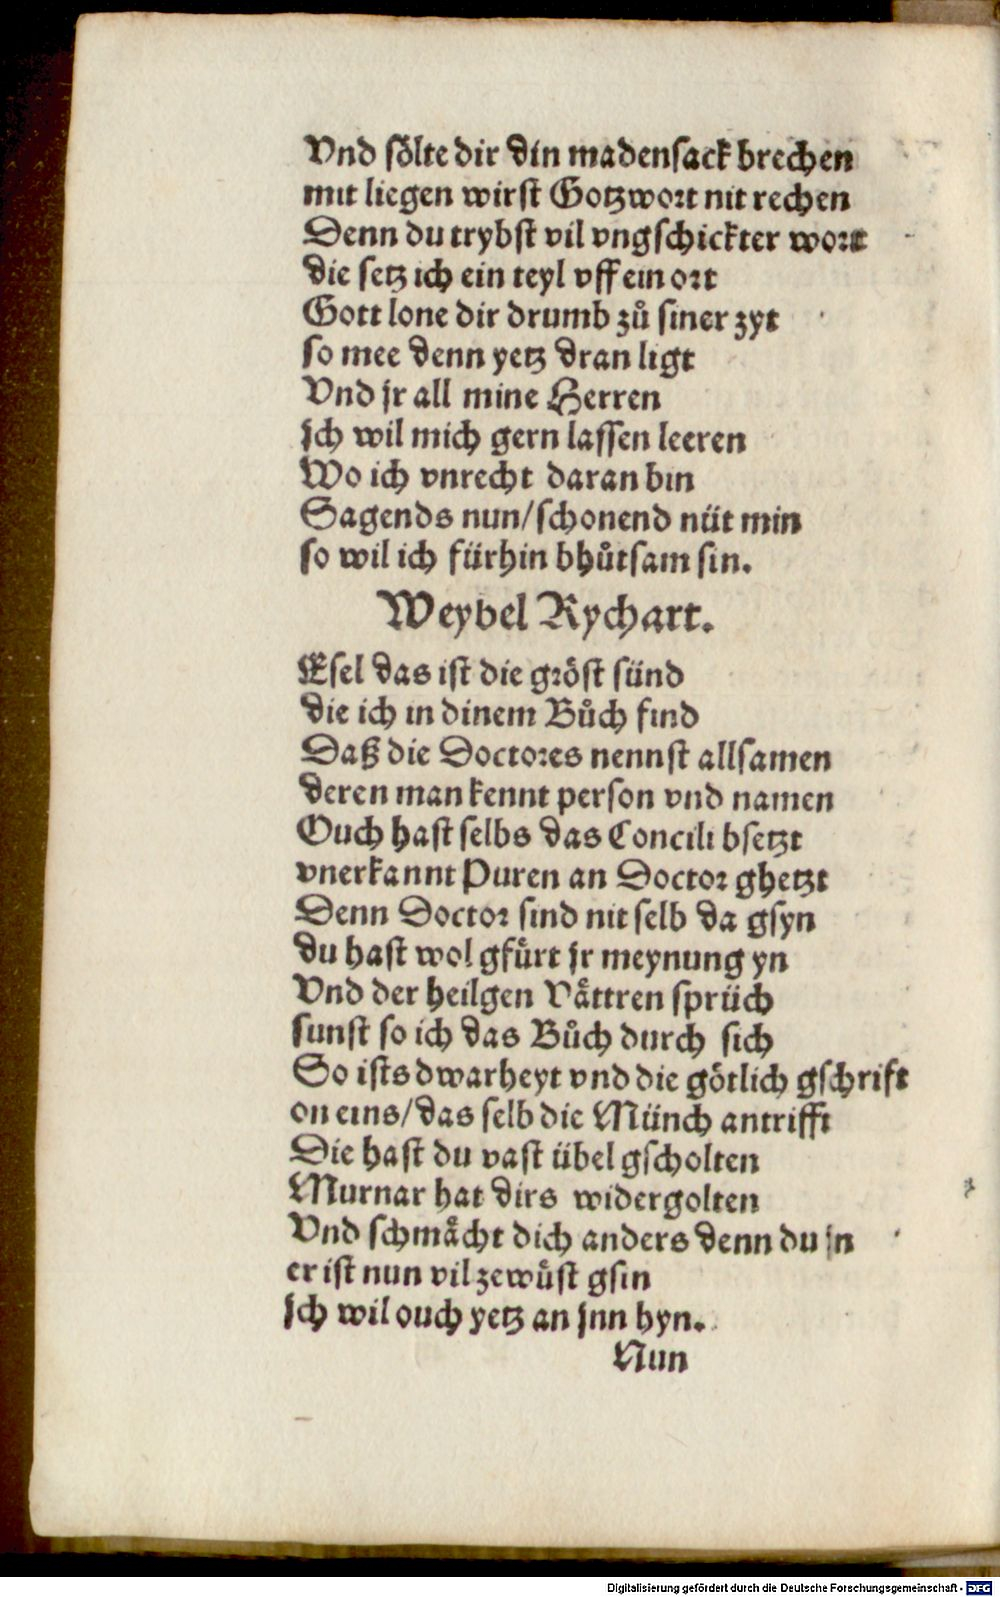 Vnd sölte dir din madensack brechen
mit liegen wirst Gotzwort nit rechen
Denn du trybst vil vngschickter wort
die setz ich ein teyl vff ein ort
Gott lone dir drumb zů siner zyt
so mee denn yetz dran ligt
Vnd jr all mine Herren
Jch wil mich gern lassen leeren
Wo ich vnrecht daran bin
Sagends nun/schonend nüt min
so wil ich fürhin bhůtsam sin.
Weybel Rychart.
Esel das ist die gröst sünd
die ich in dinem Bůch find
Daß die Doctores nennst allsamen
deren man kennt person vnd namen
Ouch hast selbs das Concili bsetzt
vnerkannt Puren an Doctor ghetzt
Denn Doctor sind nit selb da gsyn
du hast wol gfürt jr meynung yn
Vnd der heilgen Våttren sprüch
sunst so ich das Bůch durch sich
So ists dwarheyt vnd die götlich gschrift
on eins/das selb die Münch antrifft
Die hast du vast übel gscholten
Murnar hat dirs widergolten
Vnd schmåcht dich anders denn du jn
er ist nun vil zewůst gsin
Jch wil ouch yetz an jnn hyn.
Nun
Digitalisierung gefördert durch die Deutsche Forschungsgemeinschaft - DFG